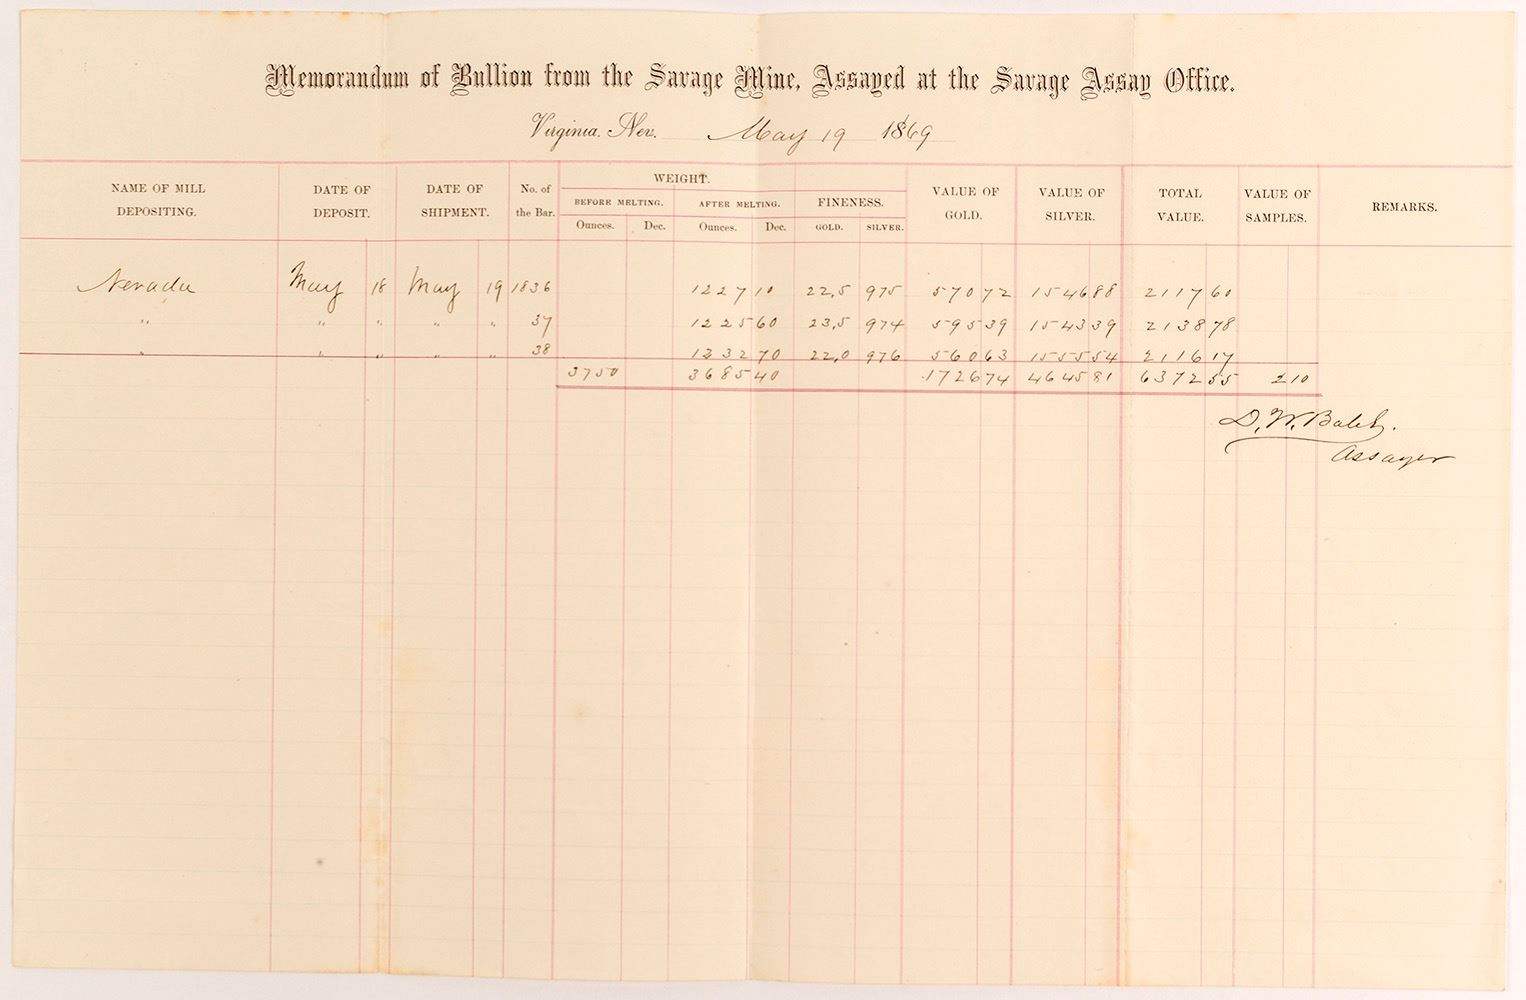 Memorandum of Bullion from the Savage Mine, Assayed at the Savage Assay Office.
Virginia, Nev. May 19 1869
NAME OF MILL DEPOSITING. DATE OF DEPOSIT. DATE OF SHIPMENT. No. of the Bar. WEIGHT. BEFORE MELTING. Ounces. Dec. AFTER MELTING. Ounces. Dec. FINENESS. GOLD. SILVER. VALUE OF GOLD. VALUE OF SILVER. TOTAL VALUE. VALUE OF SAMPLES. REMARKS.
Nevada May 18 May 19 1836 1227 10 22,5 975 570 72 1546 88 2117 60
" " " " " 37 1225 60 23,5 974 595 39 1543 39 2138 78
" " " " " 38 1232 70 22,0 976 560 63 1555 54 2116 17
3750 3685 40 1726 74 4645 81 6372 55 2 10
D. W. Balch.
Assayer